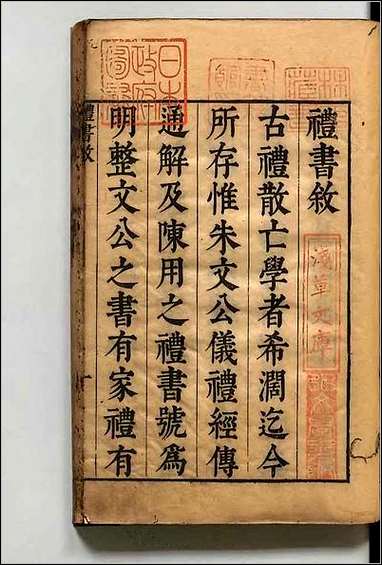 禮書敘
古禮散亡學者希濶迄今
所存惟朱文公儀禮經傳
通解及陳用之禮書號爲
明整文公之書有家禮有
禮書敘
日本
政府
圖書
淺草文庫